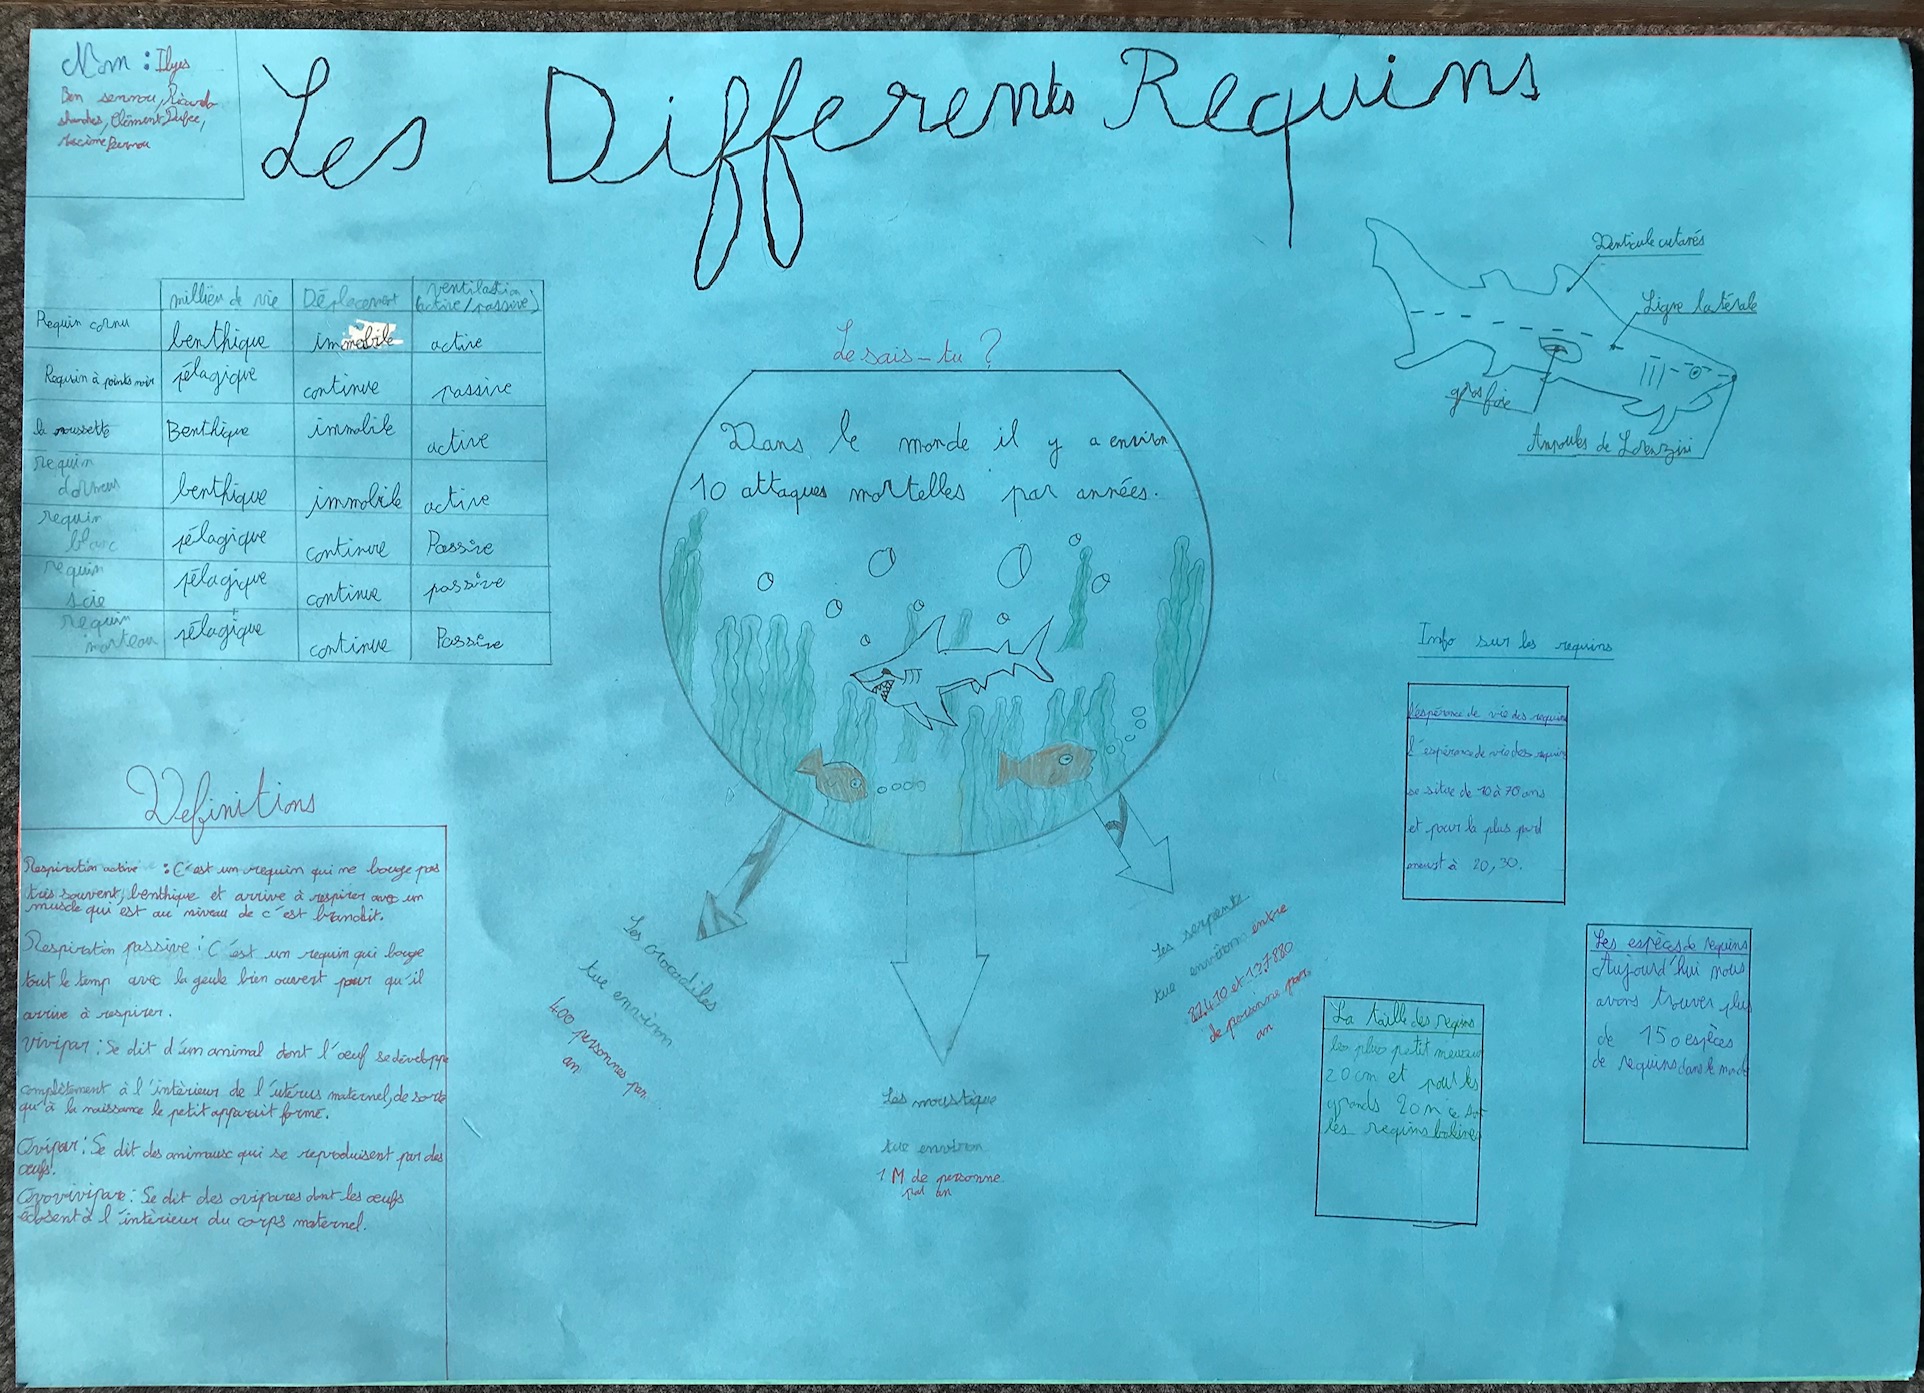 Nom : Ilyes
Ben
Clément
Les Differents Requins
millieu de vie Déplacement ventilastion (active/passive)
Requin cornu benthique immobile active
Requin à points noir pélagique continue passive
la roussette Benthique immobile active
requin dormeus benthique immobile active
requin blanc pélagique continue Passive
requin scie pélagique continue passive
requin marteau pélagique continue Passive
Le sais-tu ?
Dans le monde il y a environ
10 attaques mortelles par années.
Les crocodiles
tue environ
400 personnes par
an
Les moustique
tue environ
1 M de personne
par an
Les serpents
tue environ entre
81410 et 137880
de personne par
an
Denticule cutanés
Ligne latérale
gros foie
Ampoules de Lorenzini
Info sur les requins
l'espérance de vie des requins
l'espérance de vie des requins
se situe de 10 à 70 ans
et pour la plus part
meurst à 20,30.
Les espèces de requins
Aujourd'hui nous
avons trouver plus
de 150 espèces
de requins dans le monde
La taille des requins
les plus petit mesure
20cm et pour les
grands 20m ce sont
les requins baleines
Definitions
Respiration active : C'est un requin qui ne bouge pas
très souvent, benthique et arrive à respirer avec un
muscle qui est au niveau de c'est branchit.
Respiration passive : C'est un requin qui bouge
tout le temp avec la geule bien ouvert pour qu'il
arrive à respirer.
Vivipar : Se dit d'un animal dont l'œuf se développe
complètement à l'intèrieur de l'utérus maternel, de sorte
qu'à la naissance le petit apparait formé.
Ovipar : Se dit des animaux qui se reproduisent par des
œufs.
Ovovivipare : Se dit des ovipares dont les œufs
éclosent à l'intèrieur du corps maternel.